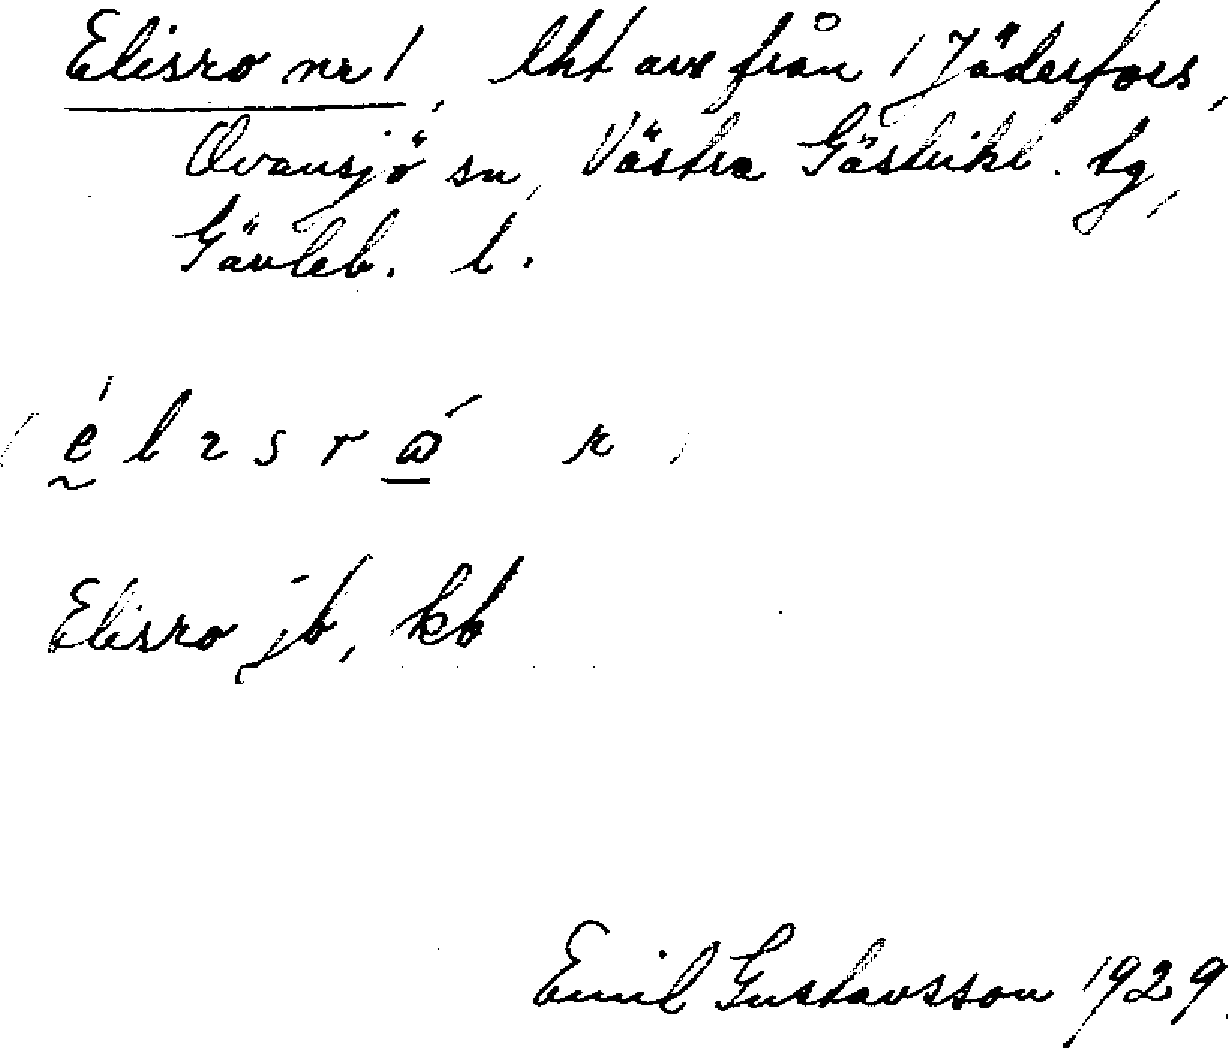 Elisro nr 1, lht avs från 1 Jäderfors,
Ovansjö sn, Västra Gästrikl. tg,
Gävleb. l.
Elisro jb, kb
Emil Gustavsson 1929.